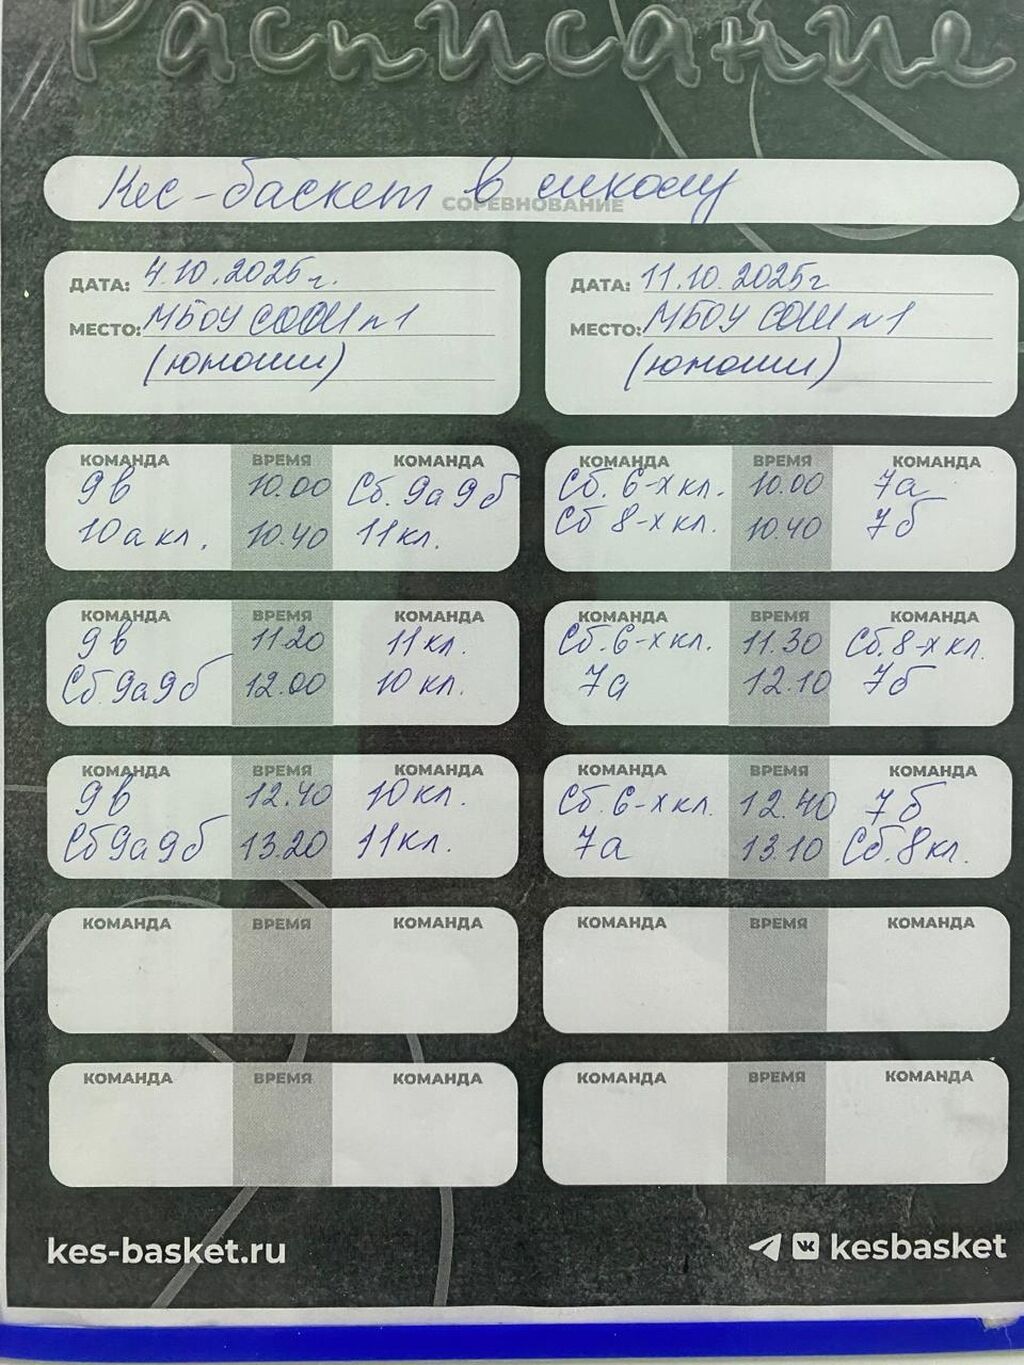 Расписание
Кес-баскет в школу
СОРЕВНОВАНИЕ
ДАТА: 4.10.2025г.
МЕСТО: МБОУ СОШ №1
(юноши)
КОМАНДА ВРЕМЯ КОМАНДА
9в 10.00 Сб. 9а9б
10а кл. 10.40 11кл.
КОМАНДА ВРЕМЯ КОМАНДА
9в 11.20 11кл.
Сб.9а9б 12.00 10кл.
КОМАНДА ВРЕМЯ КОМАНДА
9в 12.40 10кл.
Сб9а9б 13.20 11кл.
КОМАНДА ВРЕМЯ КОМАНДА
КОМАНДА ВРЕМЯ КОМАНДА
ДАТА: 11.10.2025г
МЕСТО: МБОУ СОШ №1
(юноши)
КОМАНДА ВРЕМЯ КОМАНДА
Сб. 6-х кл. 10.00 7а
Сб 8-х кл. 10.40 7б
КОМАНДА ВРЕМЯ КОМАНДА
Сб.6-х кл. 11.30 Сб.8-х кл.
7а 12.10 7б
КОМАНДА ВРЕМЯ КОМАНДА
Сб.6-х кл. 12.40 7б
7а 13.10 Сб.8кл.
КОМАНДА ВРЕМЯ КОМАНДА
КОМАНДА ВРЕМЯ КОМАНДА
kes-basket.ru
kesbasket